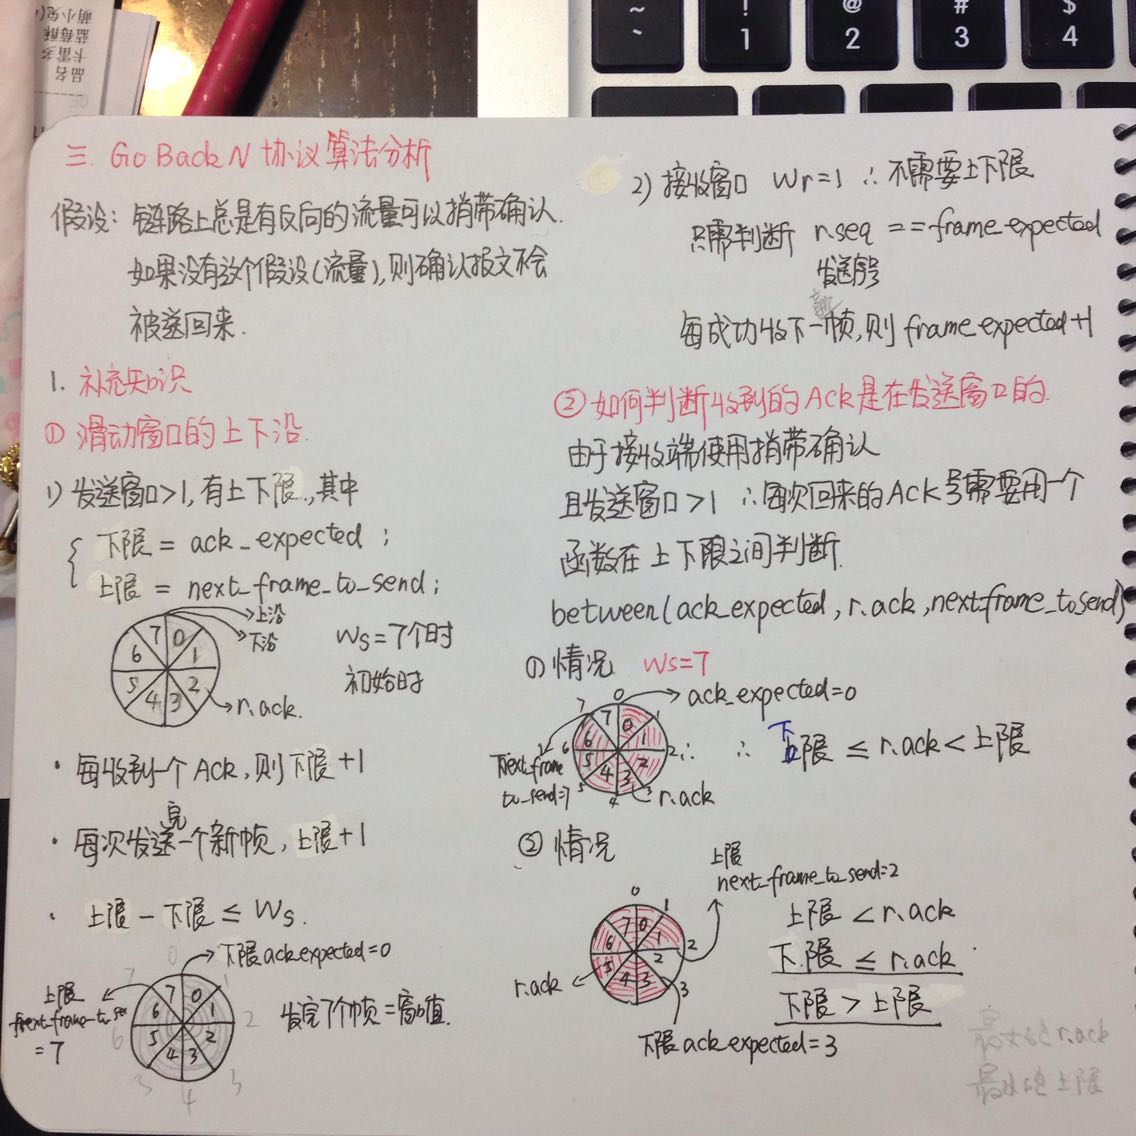 三. Go Back N 协议算法分析
假设: 链路上总是有反向的流量可以捎带确认.
如果没有这个假设(流量),则确认报文不会
被送回来.
1. 补充知识
① 滑动窗口的上下沿.
1) 发送窗口>1,有上下限.,其中
下限 = ack_expected ;
上限 = next_frame_to_send;
上沿
下沿
7 0
6 1
5 2
4 3
r.ack.
Ws=7个时
初始时
· 每收到一个 Ack,则下限+1
· 每次发送完一个新帧,上限+1
· 上限 - 下限 ≤ Ws.
下限 ack_expected=0
上限
next_frame_to_sen
= 7
7 0
6 1
5 2
4 3
7 0 1
6 2
5 4 3
发完7个帧=窗口值.
2) 接收窗口 Wr=1 ∴不需要上下限
只需判断 r.seq ==frame_expected
发送序号
每成功收下一帧,则 frame_expected+1
② 如何判断收到的Ack是在发送窗口的.
由于接收端使用捎带确认
且发送窗口>1 ∴每次回来的Ack号需要用一个
函数在上下限之间判断.
between(ack_expected,r.ack,next_frame_to_send)
① 情况 Ws=7
ack_expected=0
7 0 1
6 2
5 4 3
7 0
6 1
5 2
4 3
next_frame
to_send=7
r.ack
∴ ∴ 下限 ≤ r.ack < 上限
② 情况
上限
next_frame_to_send=2
0 1
2
3
7 0
6 1
5 2
4 3
r.ack
下限 ack_expected=3
上限 < r.ack
下限 ≤ r.ack
下限 > 上限
~
~
!
1
@
2
#
3
$
4
品名